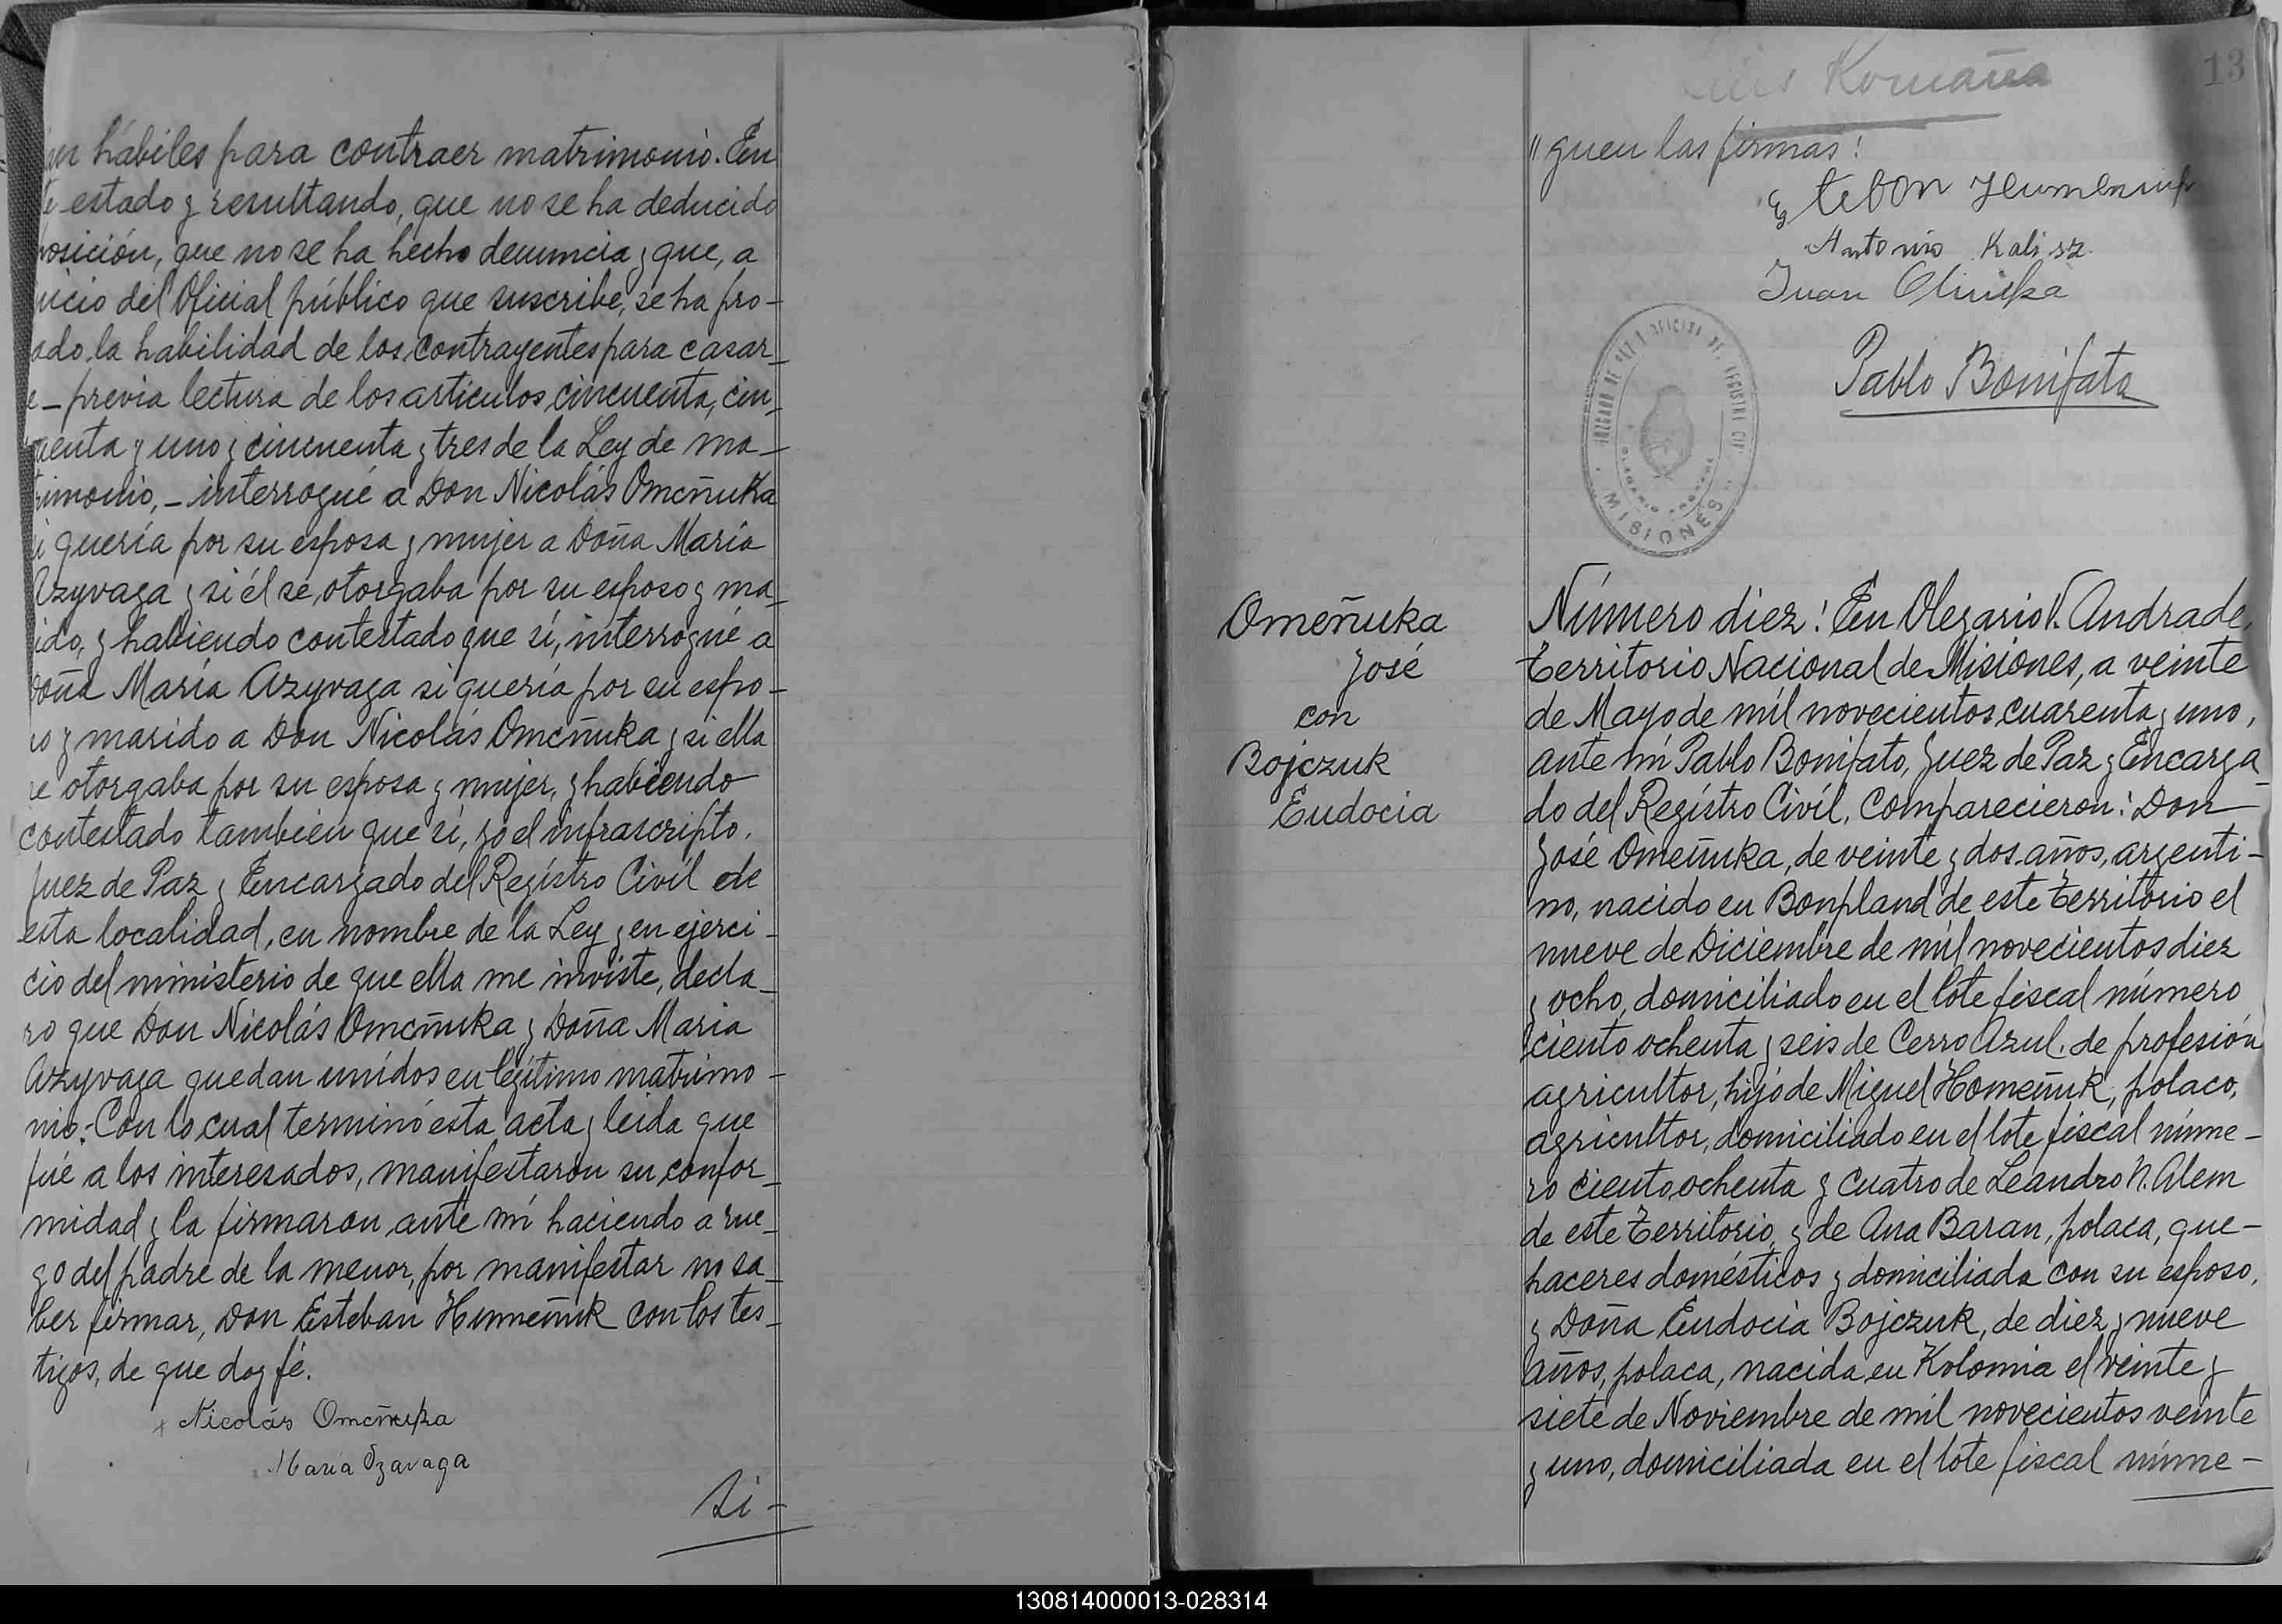 an hábiles para contraer matrimonio. En
e estado y resultando, que no se ha deducido
posición, que no se ha hecho denuncia y que, a
uicio del Oficial público que suscribe, se ha pro-
ado la habilidad de los contrayentes para casar-
e - previa lectura de los artículos cincuenta, cin-
uenta y uno y cincuenta y tres de la Ley de ma-
rimonio, - interrogué a Don Nicolás Omeñuka
i quería por su esposa y mujer a Doña María
Azyvaga y si él se otorgaba por su esposo y ma-
ido, y habiendo contestado que sí, interrogué a
Doña María Azyvaga si quería por su espo-
so y marido a Don Nicolás Omeñuka y si ella
se otorgaba por su esposa y mujer, y habiendo
contestado también que sí, yo el infrascripto,
Juez de Paz y Encargado del Registro Civil de
esta localidad, en nombre de la Ley y en ejerci-
cio del ministerio de que ella me inviste, decla-
ro que Don Nicolás Omeñuka y Doña Maria
Azyvaga quedan unidos en legítimo matrimo-
nio. Con lo cual terminó esta acta y leída que
fué a los interesados, manifestaron su confor-
midad y la firmaron ante mí haciendo a rue-
go del padre de la menor, por manifestar no sa-
ber firmar, Don Esteban Humeñuk con los tes-
tigos, de que doy fé.
Nicolás Omeñuka
Maria Ozavaga
Si-
13
Romaña
"guen las firmas:
Esteban
Antonio Kalisz
Juan
Pablo Bonifato
JUZGADO DE PAZ Y OFICINA DEL REGISTRO CIVIL
MISIONES
Omeñuka
José
con
Bojczuk
Eudocia
Número diez: En Olegario V. Andrade,
Territorio Nacional de Misiones, a veinte
de Mayo de mil novecientos cuarenta y uno,
ante mí Pablo Bonifato, Juez de Paz y Encarga-
do del Registro Civil, Comparecieron: Don
José Omeñuka, de veinte y dos años, argenti-
no, nacido en Bonpland de este Territorio el
nueve de Diciembre de mil novecientos diez
y ocho, domiciliado en el lote fiscal número
ciento ochenta y seis de Cerro Azul, de profesión
agricultor, hijo de Miguel Homeñuk, polaco,
agricultor, domiciliado en el lote fiscal núme-
ro ciento ochenta y cuatro de Leandro N. Alem
de este Territorio, y de Ana Baran, polaca, que-
haceres domésticos y domiciliada con su esposo,
y Doña Eudocia Bojczuk, de diez y nueve
años, polaca, nacida en Kolomia el veinte y
siete de Noviembre de mil novecientos veinte
y uno, domiciliada en el lote fiscal núme-
130814000013-028314